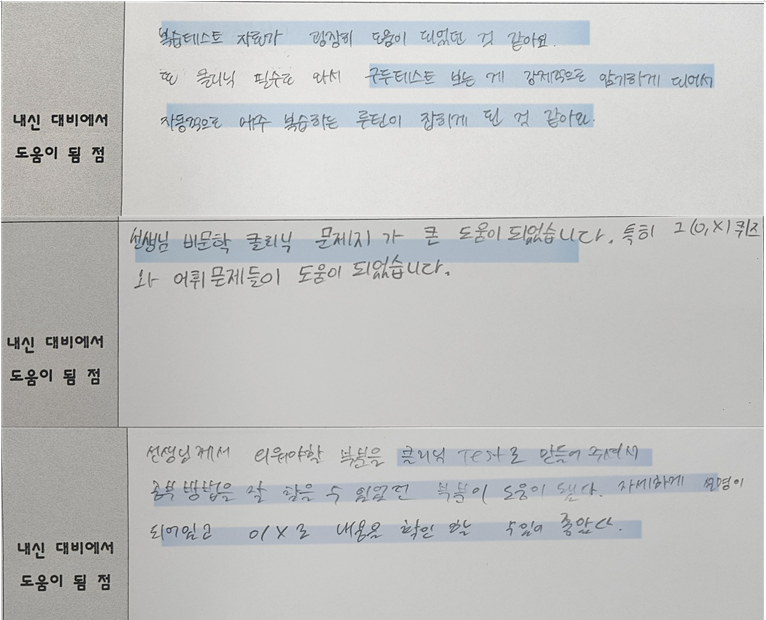 복습테스트 자료가 굉장히 도움이 되었던 것 같아요.
또 클리닉 필수로 와서 구두테스트 보는 게 강제적으로 암기하게 되어서
내신 대비에서
도움이 됨 점
자동적으로 매주 복습하는 루틴이 잡히게 된 것 같아요.
선생님 비문학 클리닉 문제지가 큰 도움이 되었습니다. 특히 그 (O,X) 퀴즈
와 어휘문제들이 도움이 되었습니다.
내신 대비에서
도움이 됨 점
선생님께서 외워야할 부분을 클리닉 TEST로 만들어 주셔서
공부 방법을 잘 잡을 수 있었던 부분이 도움이 됐다. 자세하게 설명이
되어있고 O/X로 내용을 확인 하는 수업이 좋았다.
내신 대비에서
도움이 됨 점